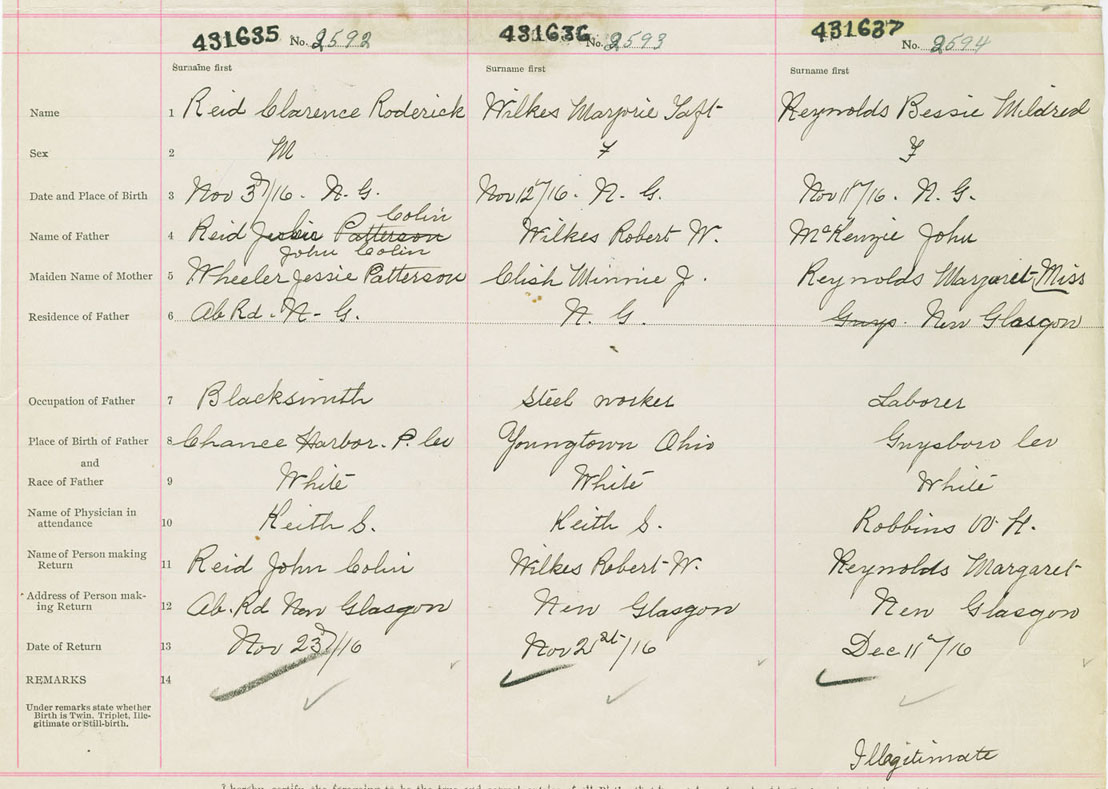 431635 No. 2592 431636 No. 2593 431637 No. 2594
Surname first Surname first Surname first
Name 1 Reid Clarence Roderick Wilkes Marjorie Taft Reynolds Bessie Mildred
Sex 2 M F F
Date and Place of Birth 3 Nov 3rd/16. N. G. Nov 12th/16. N. G. Nov 11th/16. N. G.
Colin
Name of Father 4 Reid Jessie Patterson Wilkes Robert W. McKenzie John
John Colin
Maiden Name of Mother 5 Wheeler Jessie Patterson Clish Minnie J. Reynolds Margaret-Miss
Residence of Father 6 Ab Rd. N. G. N. G. Guys. New Glasgow
Occupation of Father 7 Blacksmith Steel worker Laborer
Place of Birth of Father 8 Chance Harbor. P. Co Youngtown Ohio Guysboro Co
and
Race of Father 9 White White White
Name of Physician in
attendance 10 Keith S. Keith S. Robbins W. H.
Name of Person making
Return 11 Reid John Colin Wilkes Robert W. Reynolds Margaret
Address of Person mak-
ing Return 12 Ab. Rd New Glasgow New Glasgow New Glasgow
Date of Return 13 Nov 23rd/16 Nov 21st/16 Dec 11th/16
REMARKS 14
Under remarks state whether
Birth is Twin, Triplet, Ille-
gitimate or Still-birth.
Illegitimate